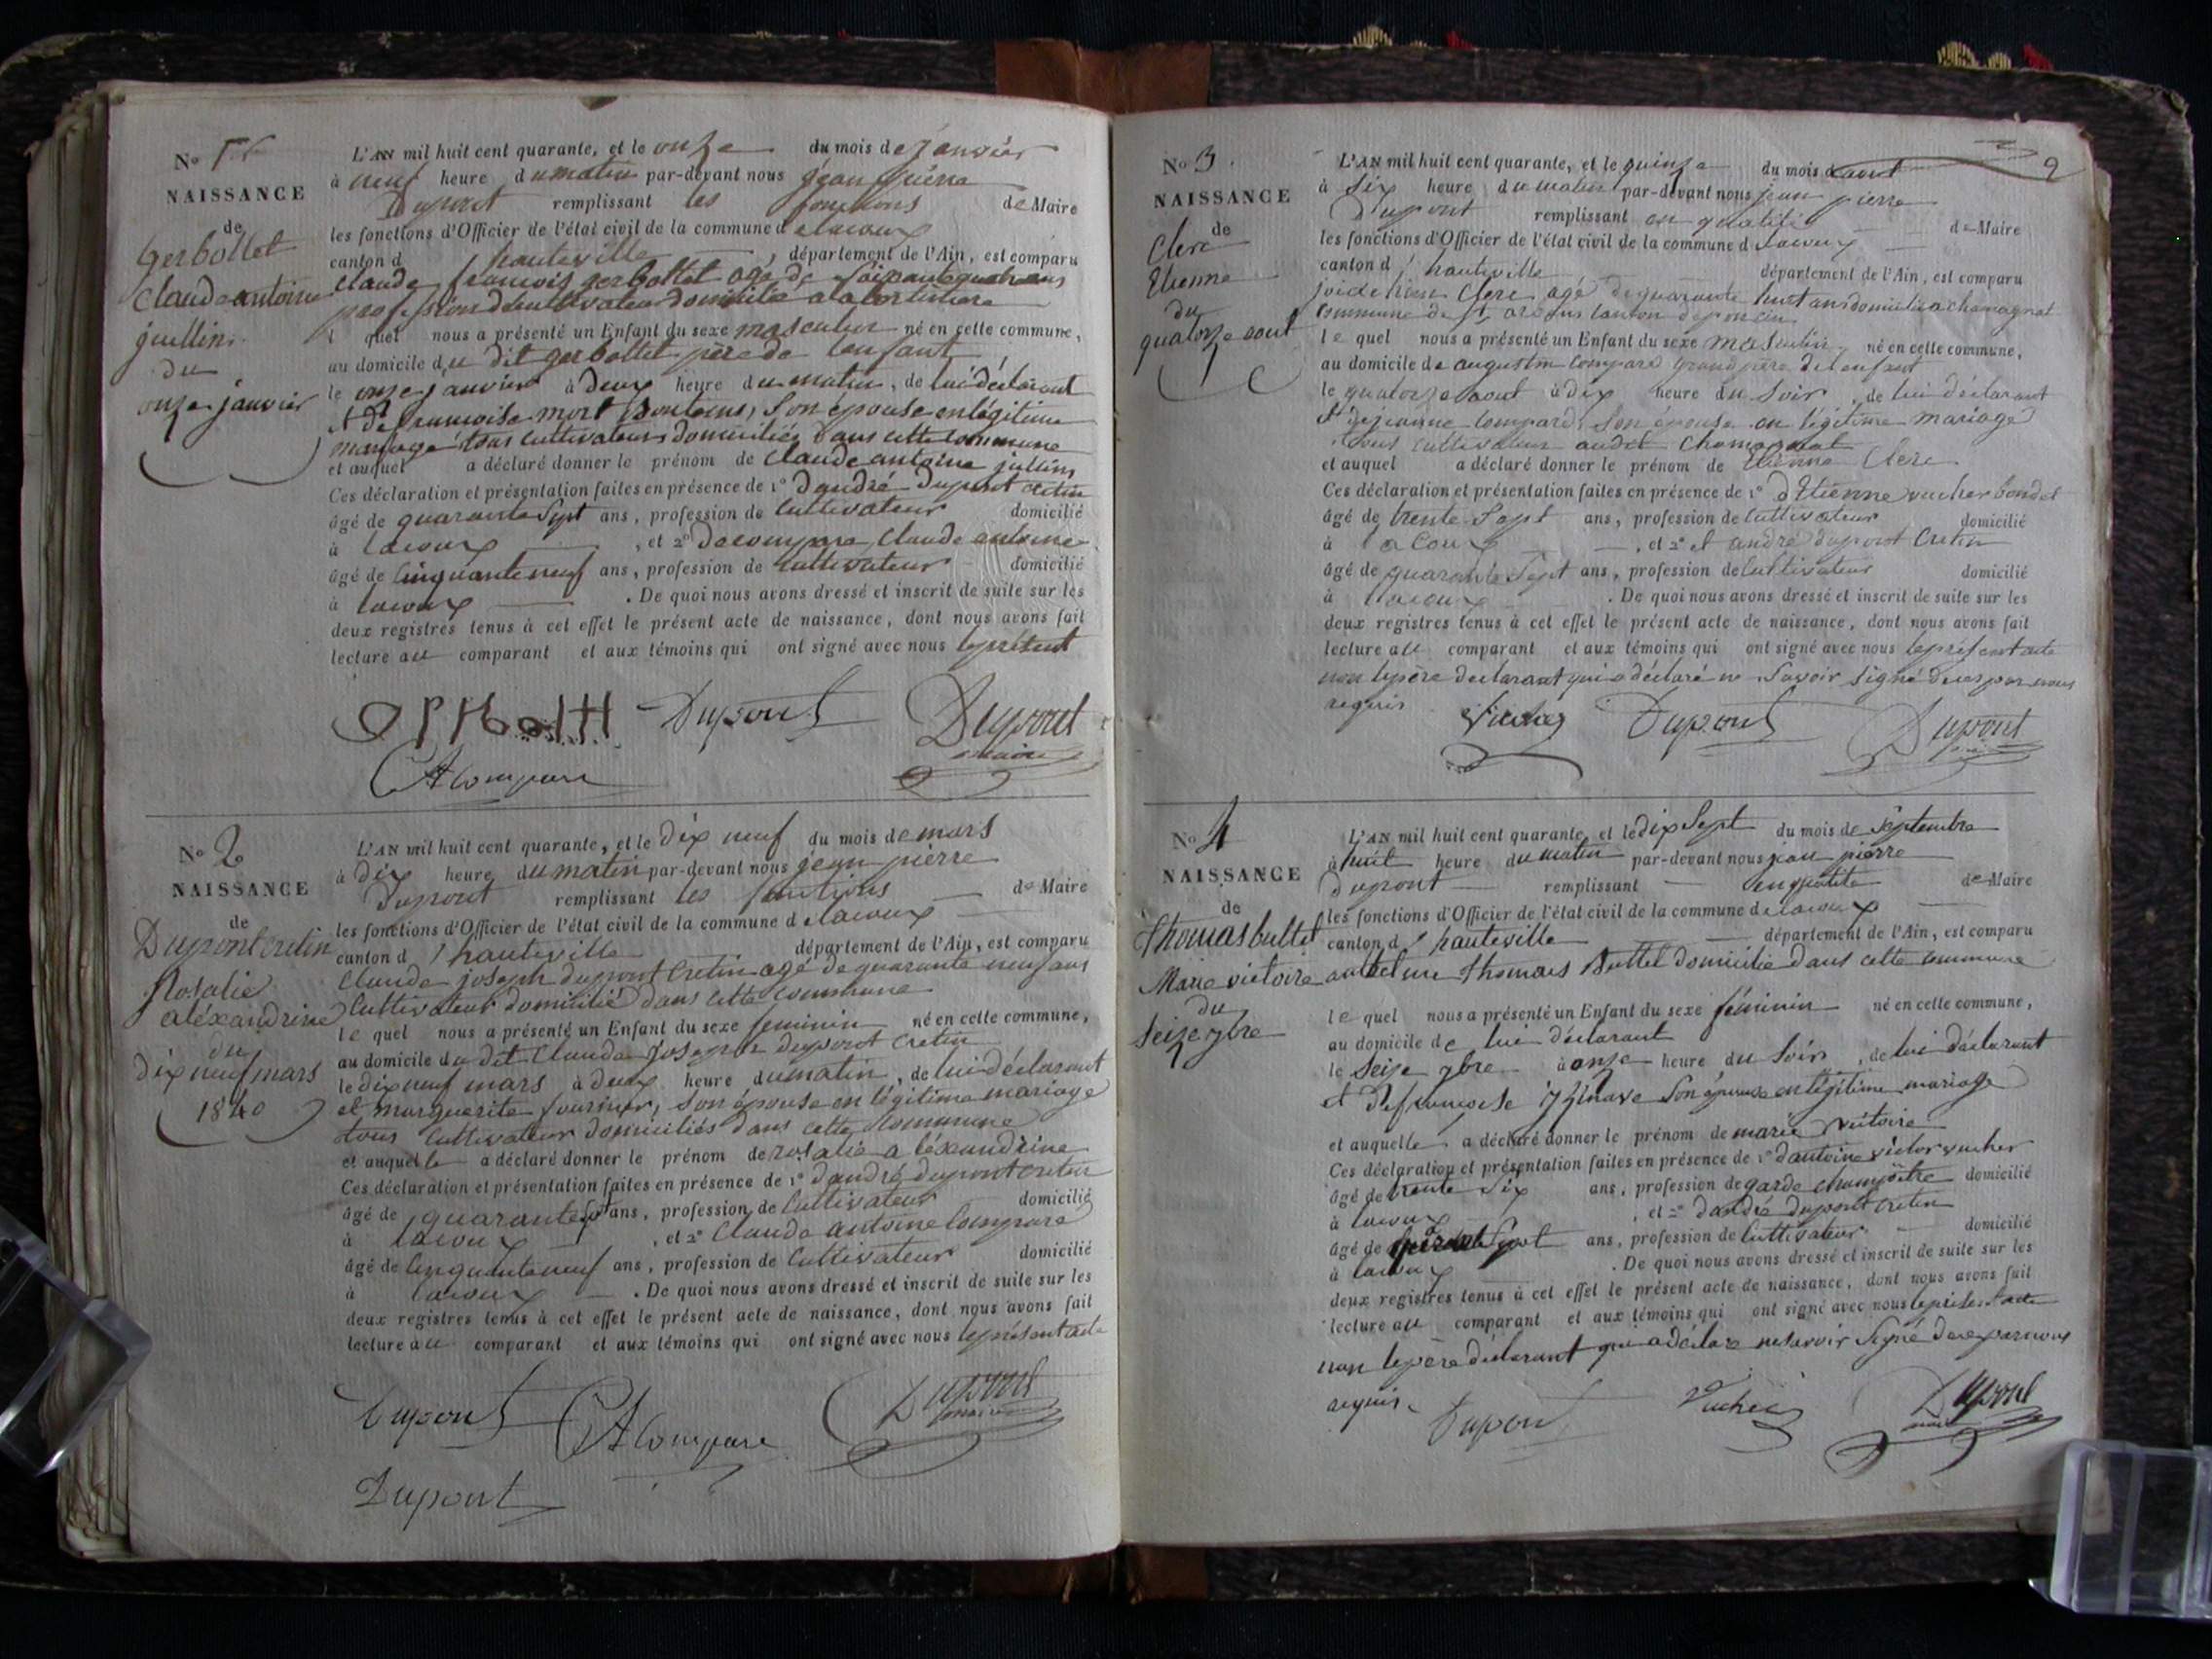 No 1er
NAISSANCE
de
Gerbollet
Claude antoine
jullin
du
onze janvier
L'AN mil huit cent quarante, et le onze du mois de janvier
à neuf heure du matin par-devant nous jean pierre
Dupont remplissant les fonctions de Maire
les fonctions d'Officier de l'état civil de la commune de lacoux
canton d'hauteville, département de l'Ain, est comparu
Claude françois gerbollet agé de soixante quatre ans
profession de cultivateur domicilié a
lequel nous a présenté un Enfant du sexe masculin né en cette commune,
au domicile du dit gerbollet père de lenfant
le onze janvier à deux heure du matin, de lui déclarant
et de francoise mort son épouse en légitime
mariage tous cultivateurs domiciliés dans cette commune
et auquel a déclaré donner le prénom de Claude antoine jullin
Ces déclaration et présentation faites en présence de 1° dandré dupont cretin
âgé de quarante sept ans, profession de cultivateur domicilié
à lacoux, et 2° de compare Claude antoine
âgé de cinquante neuf ans, profession de cultivateur domicilié
à lacoux. De quoi nous avons dressé et inscrit de suite sur les
deux registres tenus à cet effet le présent acte de naissance, dont nous avons fait
lecture au comparant et aux témoins qui ont signé avec nous le présent
Dupont Dupont
maire
CA Compare
No 2
NAISSANCE
de
Dupont cretin
Rosalie
aléxandrine
du
dix neuf mars
1840
L'AN mil huit cent quarante, et le dix neuf du mois de mars
à dix heure du matin par-devant nous jean pierre
Dupont remplissant les fonctions de Maire
les fonctions d'Officier de l'état civil de la commune de lacoux
canton d'hauteville département de l'Ain, est comparu
Claude joseph dupont Cretin agé de quarante neuf ans
Cultivateur domicilié dans cette commune
lequel nous a présenté un Enfant du sexe feminin né en cette commune,
au domicile du dit Claude joseph dupont Cretin
le dix neuf mars à deux heure du matin, de lui déclarant
et marguerite fournier, son épouse en légitime mariage
tous Cultivateur domiciliés dans cette Commune
et auquelle a déclaré donner le prénom de rosalie aléxandrine
Ces déclaration et présentation faites en présence de 1° dandré dupont cretin
âgé de quarante sept ans, profession de Cultivateur domicilié
à lacoux, et 2° Claude antoine Compare
âgé de cinquante neuf ans, profession de Cultivateur domicilié
à lacoux. De quoi nous avons dressé et inscrit de suite sur les
deux registres tenus à cet effet le présent acte de naissance, dont nous avons fait
lecture au comparant et aux témoins qui ont signé avec nous le présent acte
Dupont CA Compare Dupont
maire
Dupont
2
No 3.
NAISSANCE
de
Clerc
Etienne
du
quatorze aout
L'AN mil huit cent quarante, et le quinze du mois d'aout
à six heure du matin par-devant nous jean pierre
Dupont remplissant en qualité de Maire
les fonctions d'Officier de l'état civil de la commune d lacoux
canton d'hauteville département de l'Ain, est comparu
Clerc agé de quarante huit ans domicilié a chamagnat
commune de St canton de poncin
lequel nous a présenté un Enfant du sexe masculin né en cette commune,
au domicile de augustin compare grand père de lenfant
le quatorze aout à dix heure du soir, de lui déclarant
et de jeanne compare, son épouse en légitime mariage
tous cultivateur audit Chamagnat
et auquel a déclaré donner le prénom de Etienne Clerc
Ces déclaration et présentation faites en présence de 1° d'Etienne vucher bondet
âgé de trente Sept ans, profession de Cultivateur domicilié
à lacoux, et 2° et andré dupont Cretin
âgé de quarante Sept ans, profession de Cultivateur domicilié
à lacoux. De quoi nous avons dressé et inscrit de suite sur les
deux registres tenus à cet effet le présent acte de naissance, dont nous avons fait
lecture au comparant et aux témoins qui ont signé avec nous le présent acte
non le père declarant qui a déclaré ne Savoir Signé de ce par nous
requis
Dupont Dupont
No 4
NAISSANCE
de
Thomas buttet
Marie victoire
du
Seize 7bre
L'AN mil huit cent quarante, et le dix Sept du mois de Septembre
à huit heure du matin par-devant nous jean pierre
dupont remplissant en qualité de Maire
les fonctions d'Officier de l'état civil de la commune de lacoux
canton d'hauteville département de l'Ain, est comparu
anthelme Thomas Buttet domicilié dans cette commune
lequel nous a présenté un Enfant du sexe féminin né en cette commune,
au domicile de lui déclarant
le Seize 7bre à onze heure du Soir, de lui déclarant
et de françoise Son épouse en légitime mariage
et auquelle a déclaré donner le prénom de marie victoire
Ces déclaration et présentation faites en présence de 1° dantoine victor vucher
âgé de trente Six ans, profession de garde champêtre domicilié
à lacoux, et 2° dandré dupont cretin
âgé de Sept ans, profession de Cultivateur domicilié
à lacoux. De quoi nous avons dressé et inscrit de suite sur les
deux registres tenus à cet effet le présent acte de naissance, dont nous avons fait
lecture au comparant et aux témoins qui ont signé avec nous le présent acte
non le père déclarant qui a déclaré ne savoir Signé de ce par nous
requis.
Dupont Vucher Dupont
maire